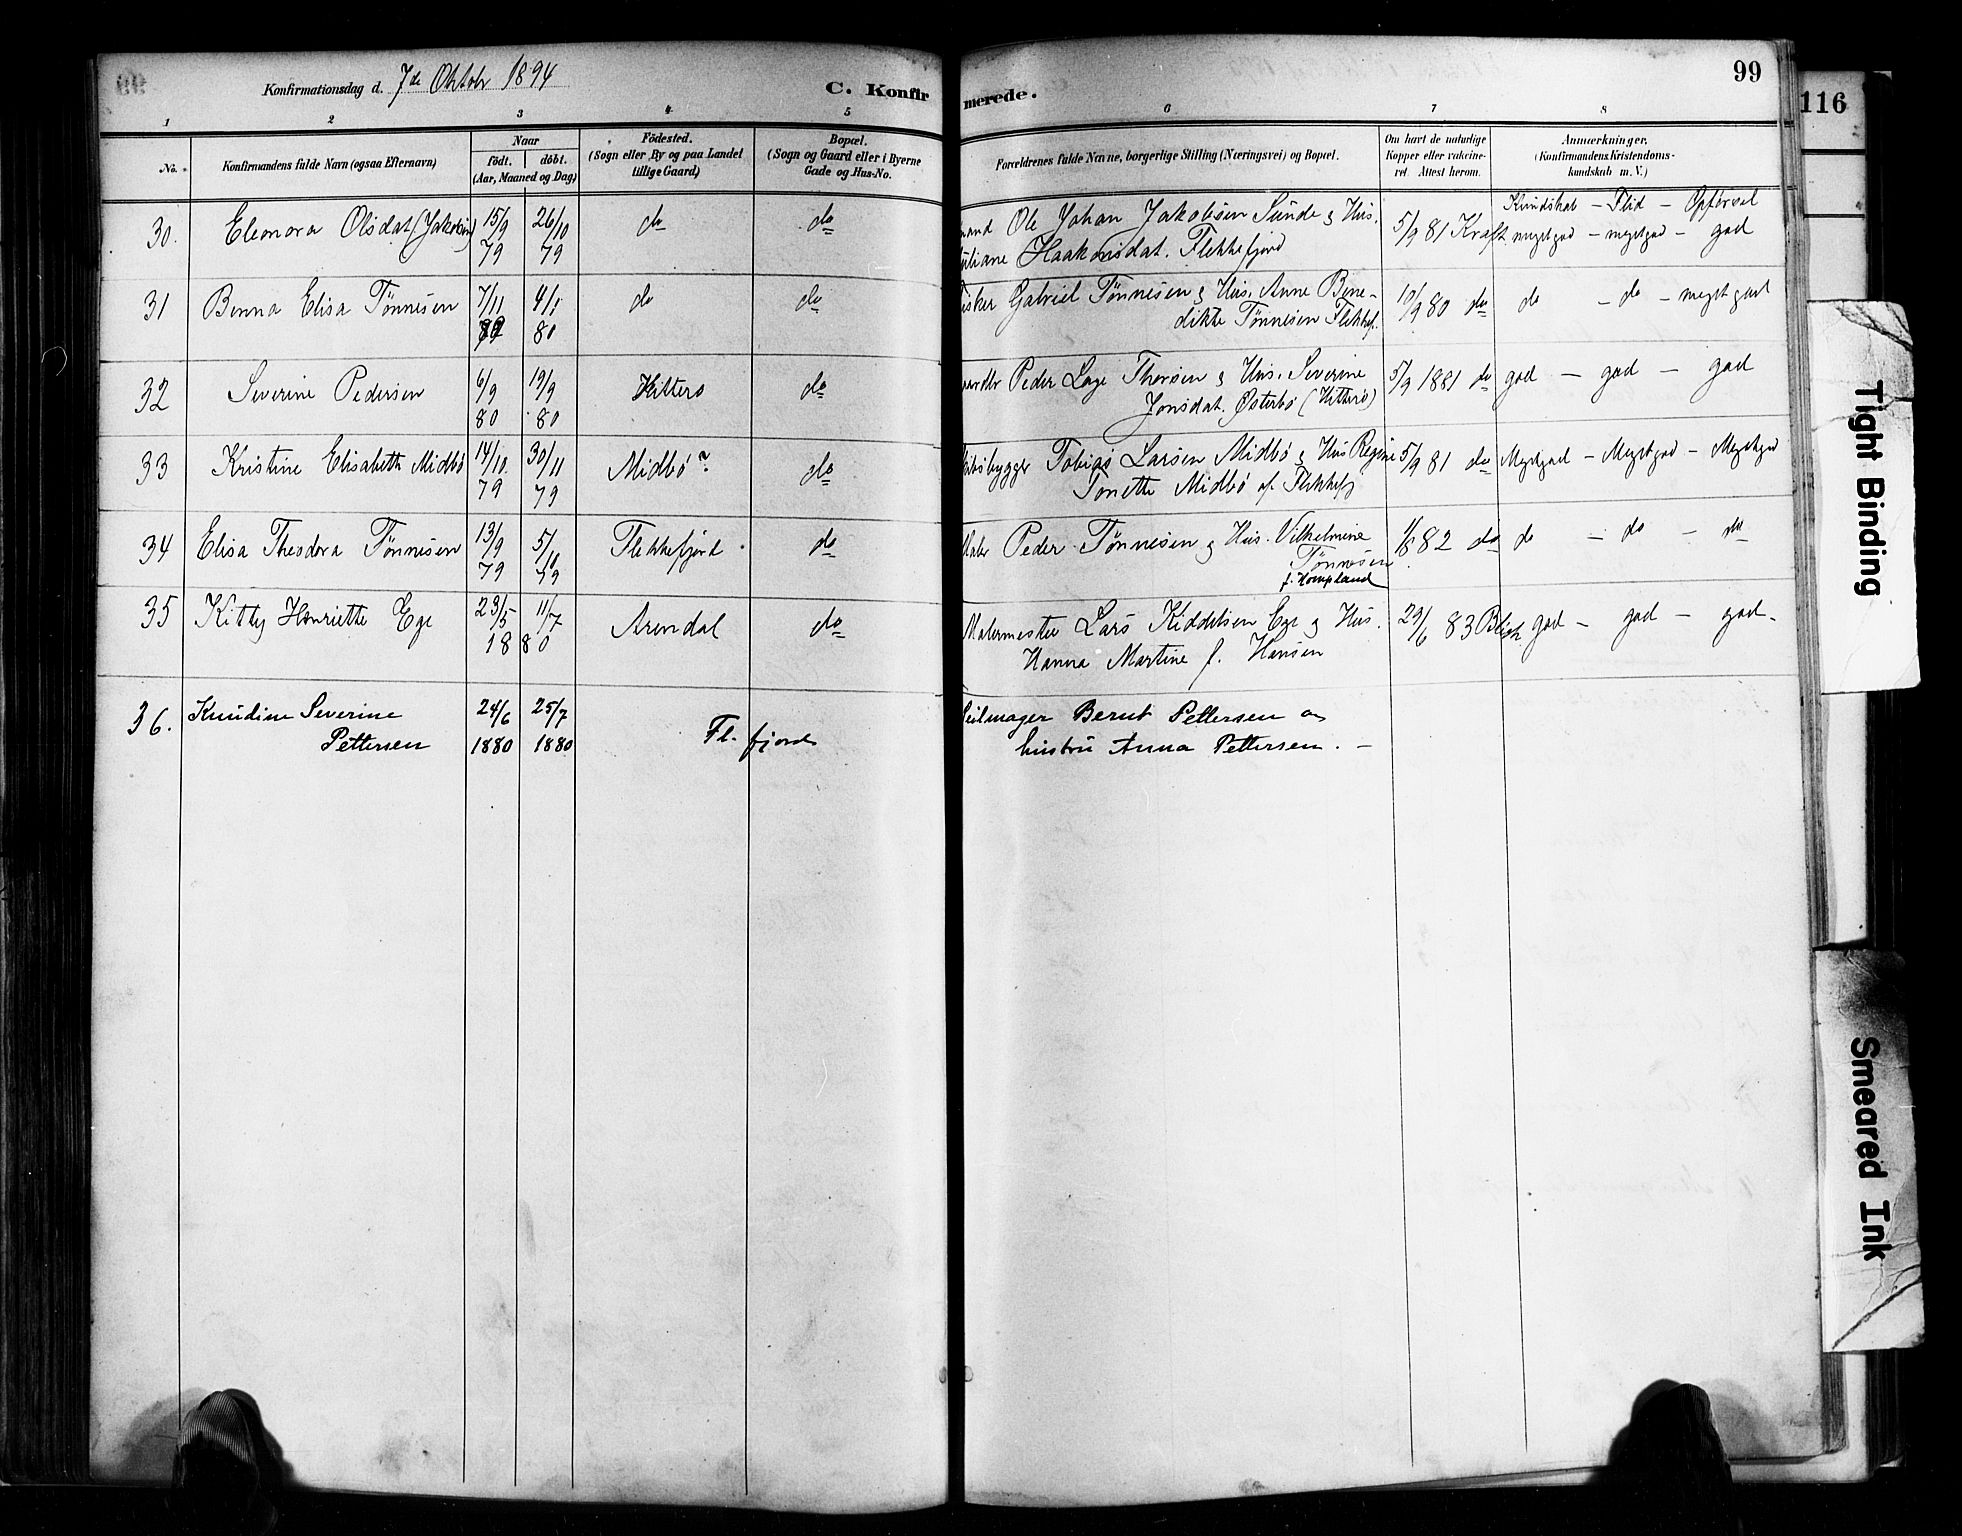 Konfirmationsdag d. 7de Oktobr 1894
C. Konfir
merede.
99
116
1 2 3 4 5 6 7 8
No.
Konfirmandens fulde Navn (ogsaa Efternavn)
Naar
födt. döbt.
(Aar, Maaned og Dag)
Födested.
(Sogn eller By og paa Landet
tillige Gaard)
Bopæl.
(Sogn og Gaard eller i Byerne
Gade og Hus-No.
Forældrenes fulde Navne, borgerlige Stilling (Næringsvei) og Bopæl.
Om havt de naturlige
Kopper eller vakcine-
ret. Attest herom.
Anmærkninger.
(Konfirmandens Kristendoms-
kundskab m. V.)
Kundskab – Flid – Opførsel
30. Eleonora Olsdat (Jakobsen) 15/9 79 26/10 79 do do
mand Ole Johan Jakobsen Sunde & Hus.
uliane Haakonsdat. Flekkefjord
5/9 81 Kraft megetgod – megetgod – god
31 Benna Elisa Tønnesen 7/11 79 4/1 80 do do
isker Gabriel Tønnesen & Hus. Anne Bene-
dikte Tønnesen Flekkef.
10/9 80 do do – do – meget god
32 Severine Pedersen 6/9 80 19/9 80 Hitterø do
Peder Lage Thorsen & Hus. Severine
Jonsdat. Østerbø (Hitterø)
5/9 1881 do god – god – god
33 Kristine Elisabeth Midbö 14/10 79 30/11 79 Midbö? do
ibsbygger Tobias Larsen Midbö & Hus Regine
Tonette Midbö af Flekkefj
5/9 81 do Megetgod – Megetgod – Megetgod
34 Elisa Theodora Tönnesen 13/9 79 5/10 79 Flekkefjord do
Maler Peder Tönnesen & Hus. Vilhelmine
Tönnesen
f. Hompland
82 do do – do – do
35 Kitty Henriette Ege 23/5 11/7 1880 Arendal do
Malermester Lars Kiddelsen Ege og Hus.
Hanna Martine f. Hansen
29/6 83 god – god – god
36. Knudine Severine
Pettersen 24/6 1880 25/7 1880 Fl.fjord
Seilmager Bernt Pettersen og
hustru Anna Pettersen. –
Tight Binding
Smeared Ink